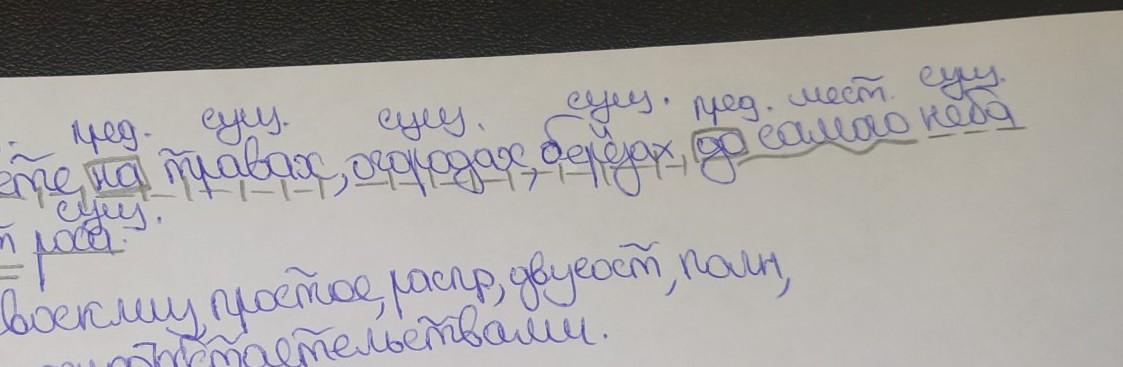 пред. сущ. сущ. сущ. пред. мест. сущ.
на травах, огородах, берёзах, до самого неба
сущ.
роса.
воскл, простое, распр, двусост, полн,